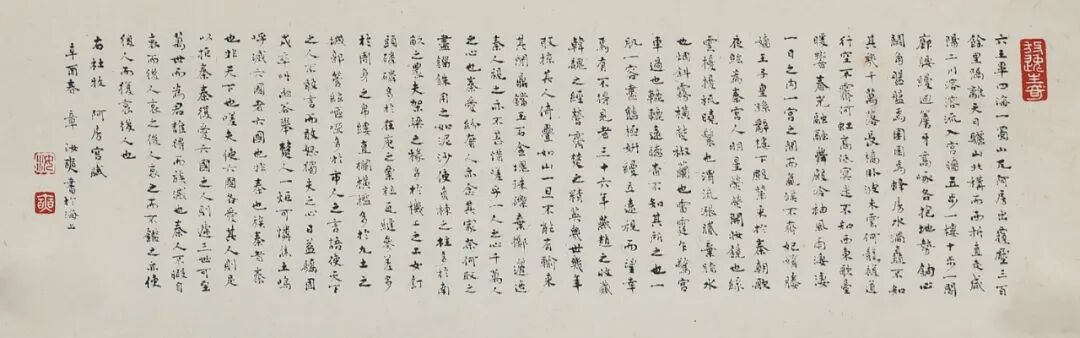 六王畢四海一蜀山兀阿房出覆壓三百
餘里隔離天日驪山北構而西折直走咸
陽二川溶溶流入宮牆五步一樓十步一閣
廊腰縵迴簷牙高啄各抱地勢鉤心
鬥角盤盤焉囷囷焉蜂房水渦矗不知
其幾千萬落長橋臥波未雲何龍複道
行空不霽何虹高低冥迷不知西東歌臺
暖響春光融融舞殿冷袖風雨淒淒
一日之內一宮之間而氣候不齊妃嬪媵
嬙王子皇孫辭樓下殿輦來於秦朝歌
夜絃為秦宮人明星熒熒開妝鏡也綠
雲擾擾梳曉鬟也渭流漲膩棄脂水
也煙斜霧橫焚椒蘭也雷霆乍驚宮
車過也轆轆遠聽杳不知其所之也一
肌一容盡態極妍縵立遠視而望幸
焉有不得見者三十六年燕趙之收藏
韓魏之經營齊楚之精英幾世幾年
取掠其人倚疊如山一旦不能有輸來
其間鼎鐺玉石金塊珠礫棄擲邐迤
秦人視之亦不甚惜嗟乎一人之心千萬人
之心也秦愛紛奢人亦念其家奈何取之
盡錙銖用之如泥沙使負棟之柱多於南
畝之農夫架梁之椽多於機上之工女釘
頭磷磷多於在庾之粟粒瓦縫參差多
於周身之帛縷直欄橫檻多於九土之
城郭管絃嘔啞多於市人之言語使天下
之人不敢言而敢怒獨夫之心日益驕固
戍卒叫函谷舉楚人一炬可憐焦土嗚
呼滅六國者六國也非秦也族秦者秦
也非天下也嗟夫使六國各愛其人則足
以拒秦秦復愛六國之人則遞三世可至
萬世而為君誰得而族滅也秦人不暇自
哀而後人哀之後人哀之而不鑑之亦使
後人而復哀後人也
右杜牧 阿房宮賦
辛酉春 章汝奭書於海上
汝
奭